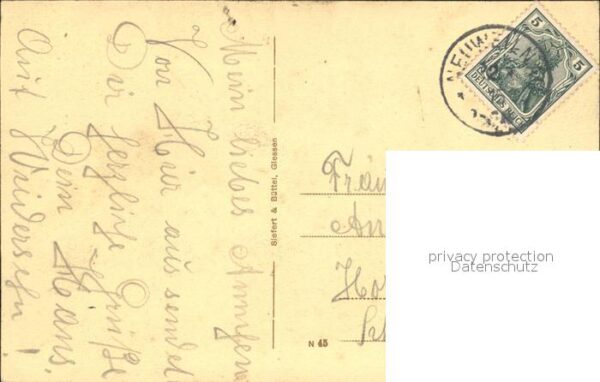 Mein liebes Annchen
Von Hier aus sendet
Dir herzliche Grüße
Dein Hans.
Auf Wiedersehn!
Siefert & Büttel, Giessen
N 45
5
5
DEUTSCHES REICH
NEUWIE
Fräu
An
Ho
privacy protection
Datenschutz